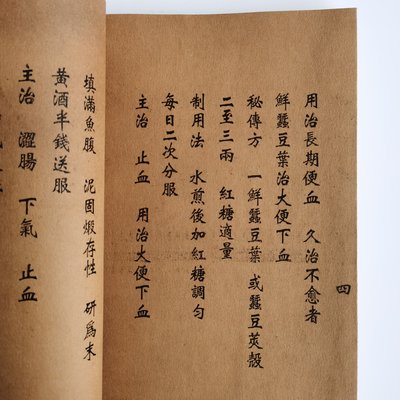 四
用治長期便血 久治不愈者
鮮蠶豆葉治大便下血
秘傳方 一鮮蠶豆葉 或蠶豆莢殼
二至三兩 紅糖適量
制用法 水煎後加紅糖調勻
每日二次分服
主治 止血 用治大便下血
填滿魚腹 泥固煅存性 研爲末
黃酒半錢送服
主治 澀腸 下氣 止血